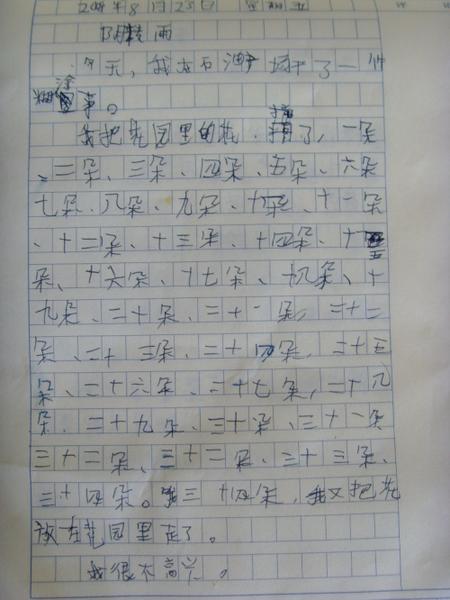 8月23日 星期五
阴转雨
今天，我在石油广场干了一件
糊涂事。
我把花园里的花摘了，一朵
、二朵、三朵、四朵、五朵、六朵
七朵、八朵、九朵、十朵、十一朵
、十二朵、十三朵、十四朵、十五
朵、十六朵、十七朵、十八朵、十
九朵、二十朵、二十一朵，二十二
朵、二十三朵、二十四朵，二十五
朵、二十六朵、二十七朵，二十八
朵、二十九朵、三十朵、三十一朵
三十二朵、三十二朵、三十三朵、
三十四朵。三十四朵，我又把花
放在花园里走了。
我很不高兴。